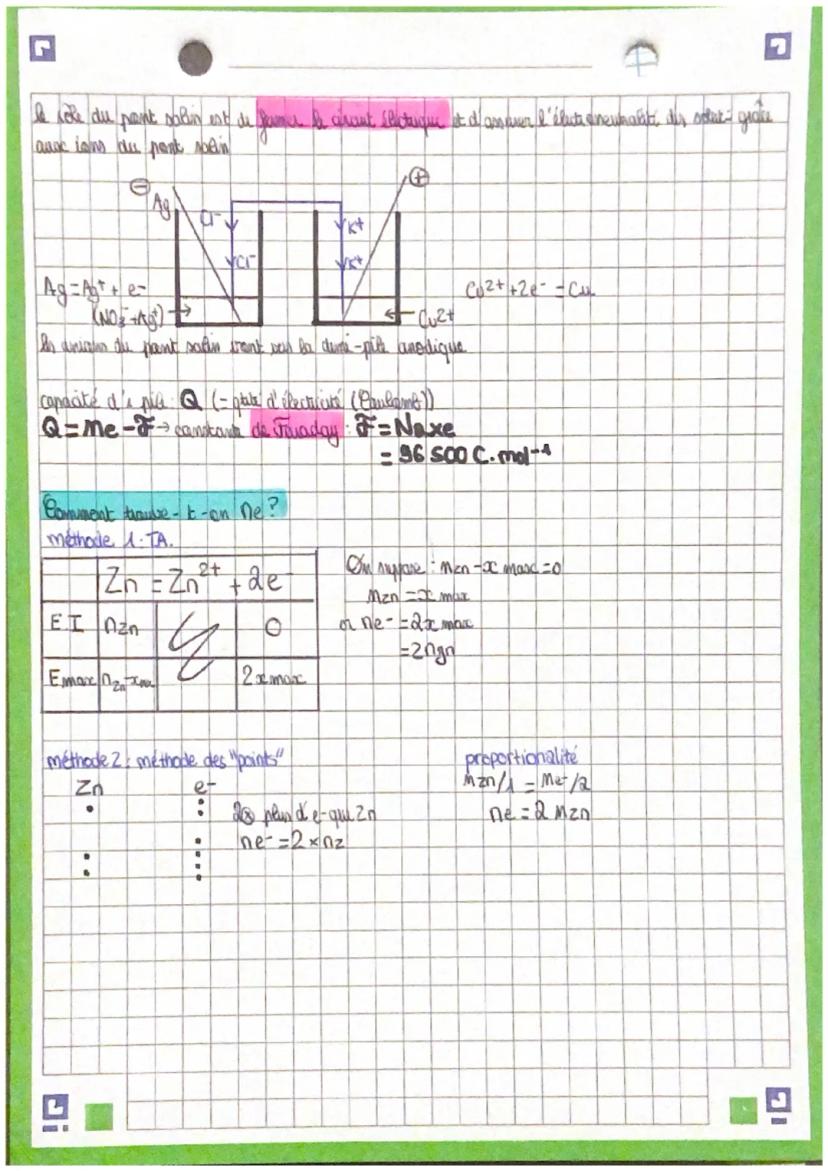 le rôle du pont salin est de fermer le circuit électrique et d'assurer l'électroneutralité des solut° grâce
aux ions du pont salin
⊖ ⊕
Ag Cl⁻ K+
Cl⁻ K+
Ag = Ag⁺ + e- Cu²⁺ + 2e⁻ = Cu
(NO₃⁻ + Ag⁺) → ← Cu2+
les anions du pont salin vont vers la demi-pile anodique
capacité d'1 pile: Q (= qtité d'électricité (Coulombs))
Q = ne - F → constante de Faraday : F = Naxe
= 96 500 C.mol⁻¹
Comment trouve-t-on ne ?
méthode 1: TA.
Zn = Zn²⁺ + 2e⁻
E I nzn 0
Emax nzn-xmax 2xmax
On suppose : nzn - x max = 0
nzn = x max
or ne⁻ = 2x max
méthode 2 : méthode des "points"
Zn e-
2⊗ plus d'e- que Zn
ne⁻ = 2 × nz
proportionalité
nzn/1 = ne⁻/2
ne = 2 nzn